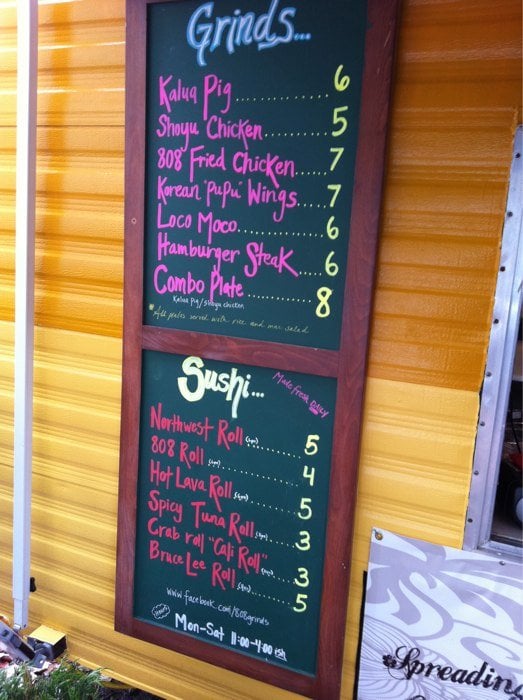 Grinds...
Kalua Pig.............. 6
Shoyu Chicken......... 5
808 Fried Chicken..... 7
Korean "pupu" Wings.... 7
Loco Moco............ 6
Hamburger Steak..... 6
Combo Plate.......... 8
Kalua Pig/Shoyu chicken
*All plates served with rice and mac salad
Sushi...
Made fresh DAILY
Northwest Roll 5
808 Roll 4
Hot Lava Roll 5
Spicy Tuna Roll 3
Crab roll "Cali Roll" 3
Bruce Lee Roll 5
www.facebook.com/808grinds
Mon-Sat 11:00-4:00 ish
Spreadin